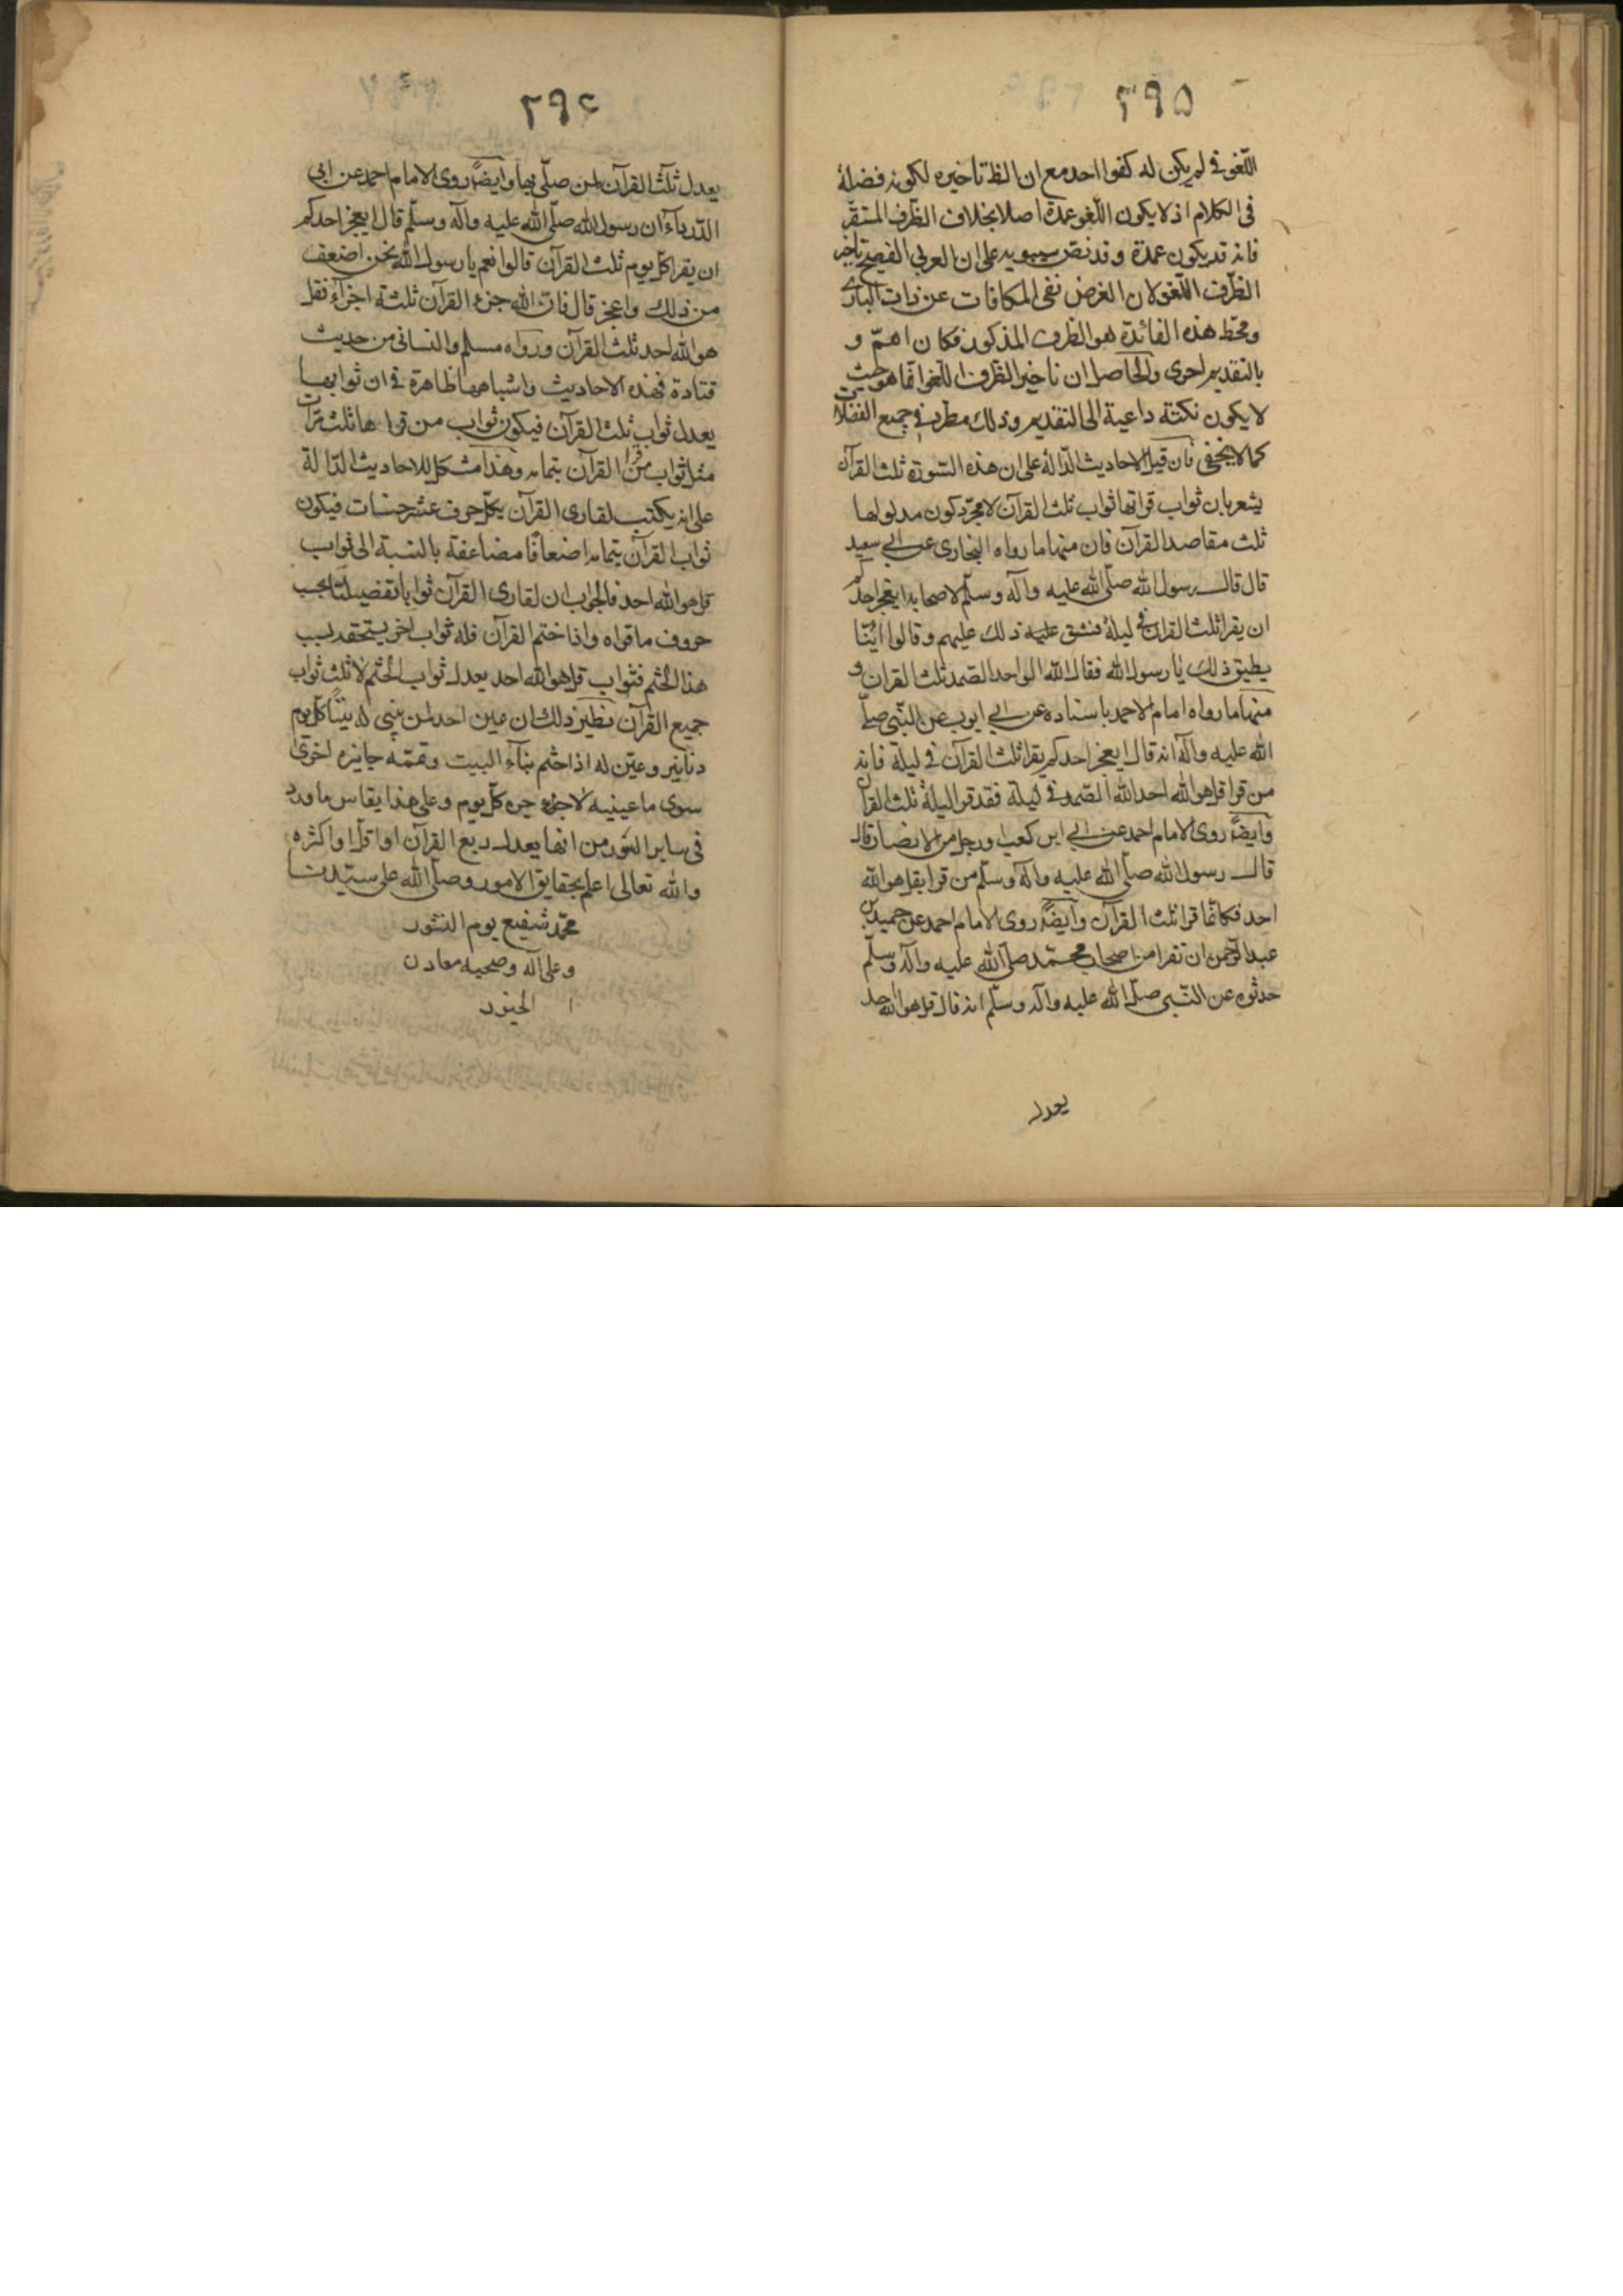 ٢٩٥
اللغو في لم يكن له كفوا احد مع ان الظ تاخيره لكونه فضلة
في الكلام اذ لا يكون اللغو عمدة اصلا بخلاف الظرف المستقر
فانه قد يكون عمدة و قد نص سيبويه على ان العربي الفصيح تاخير
الظرف اللغو لان الغرض نفى المكافات عن ذات الباري
ومحط هذه الفائدة هو الظرف المذكور فكان اهمّ و
بالتقديم احرى والحاصل ان تاخير الظرف اللغو انما هو حيث
لا يكون نكتة داعية الى التقديم وذلك مطرد في جميع الفضلات
كما لا يخفى فان قيل الاحاديث الدّالة على ان هذه السّورة ثلث القرآن
يشعر بان ثواب قراتها ثواب ثلث القرآن لا مجرّد كون مدلولها
ثلث مقاصد القرآن فان منها ما رواه البخارى عن ابي سعيد
قال قال رسول الله صلّى الله عليه وآله وسلّم لاصحابه ايعجز احدكم
ان يقرا ثلث القران في ليلة فشق عليه ذلك عليهم وقالوا ايّنا
يطيق ذلك يا رسول الله فقال الله الواحد الصمد ثلث القران و
منها ما رواه امام الاحمد باسناده عن ابي ايوب عن النّبي صلّى
الله عليه وآله انه قال ايعجز احدكم يقرا ثلث القرآن في ليلة فانه
من قرا قل هو الله احد الله الصّمد في ليلة فقد قرا ليلة ثلث القران
وايضًا روى الامام احمد عن ابي ابن كعب او رجل من الانصار قال
قال رسول الله صلّى الله عليه وآله وسلّم من قرا بقل هو الله
احد فكانّما قرا ثلث القرآن وايضًا روى الامام احمد عن حميد بن
عبد الرّحمن ان نفرا من اصحاب محمّد صلّى الله عليه وآله وسلّم
حدثوه عن النّبي صلّى الله عليه وآله وسلّم انه قال قل هو الله احد
يعدل
٢٩٤
يعدل ثلث القرآن لمن صلّى بها وايضًا روى الامام احمد عن ابي
الدّرداء ان رسول الله صلّى الله عليه وآله وسلّم قال ايعجز احدكم
ان يقرا كلّ يوم ثلث القرآن قالوا نعم يا رسول الله نحن اضعف
من ذلك واعجز قال فان الله جزء القرآن ثلثة اجزآء فقل
هو الله احد ثلث القرآن ورواه مسلم والنسائى من حديث
قتادة فهذه الاحاديث واشباهها ظاهرة في ان ثوابها
يعدل ثواب ثلث القرآن فيكون ثواب من قراها ثلث مرّات
مثل ثواب من قرا القرآن بتمامه وهذا مشكل للاحاديث الدّالة
على انه يكتب لقارى القرآن بكلّ حرف عشر حسنات فيكون
ثواب القرآن بتمامه اضعافًا مضاعفة بالنسبة الى ثواب
قل هو الله احد فالجواب ان لقارى القرآن ثوابا تفضيليّا بحسب
حروف ما قراه واذا ختم القرآن فله ثواب اخر يستحقه بسبب
هذا الختم فثواب قل هو الله احد يعدل ثواب الختم لا ثلث ثواب
جميع القرآن نظير ذلك ان عين احد لمن بنى له بيتًا كلّ يوم
دنانير وعيّن له اذا ختم بنآء البيت وتمّمه جايزه اخرى
سوى ما عينيه لاجزء كلّ يوم وعلى هذا يقاس ما ورد
في ساير السّور من انها يعدل ربع القرآن او اقل او اكثره
والله تعالى اعلم بحقايق الامور وصلّى الله على سيّدنا
محمّد شفيع يوم النشور
وعلى آله وصحبه معادن